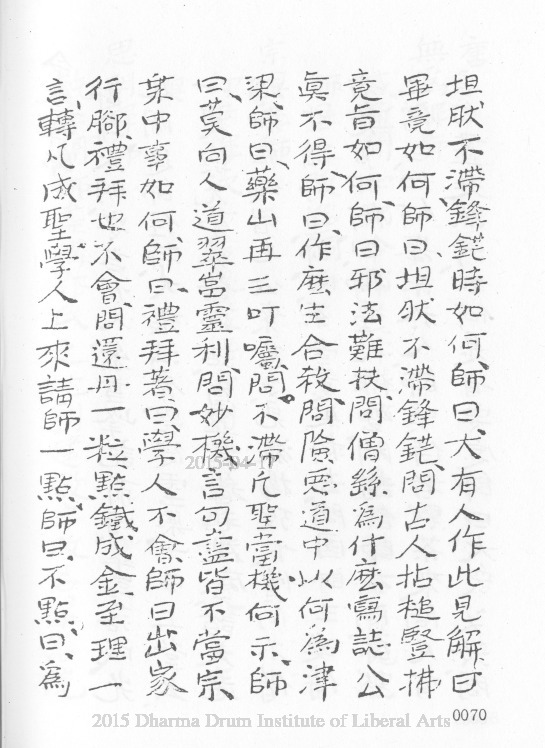 坦肰不滯鋒鋩時如何師曰大有人作此見解曰
畢竟如何師曰坦肰不滯鋒鋩問古人拈槌豎拂
竟旨如何師曰邪法難扶問僧繇為什麽寫誌公
真不得師曰作麽生合殺問險惡道中以何為津
梁師曰藥山再三叮囑問不滯凡聖當機何示師
曰莫向人道翠嵓靈利問妙機言句盖皆不當宗
葉中事如何師曰禮拜著曰學人不會師曰出家
行腳禮拜也不會問還丹一粒點鐵成金至理一
言轉凡成聖學人上來請師一點師曰不點曰為
2015-04-17
2015 Dharma Drum Institute of Liberal Arts
0070